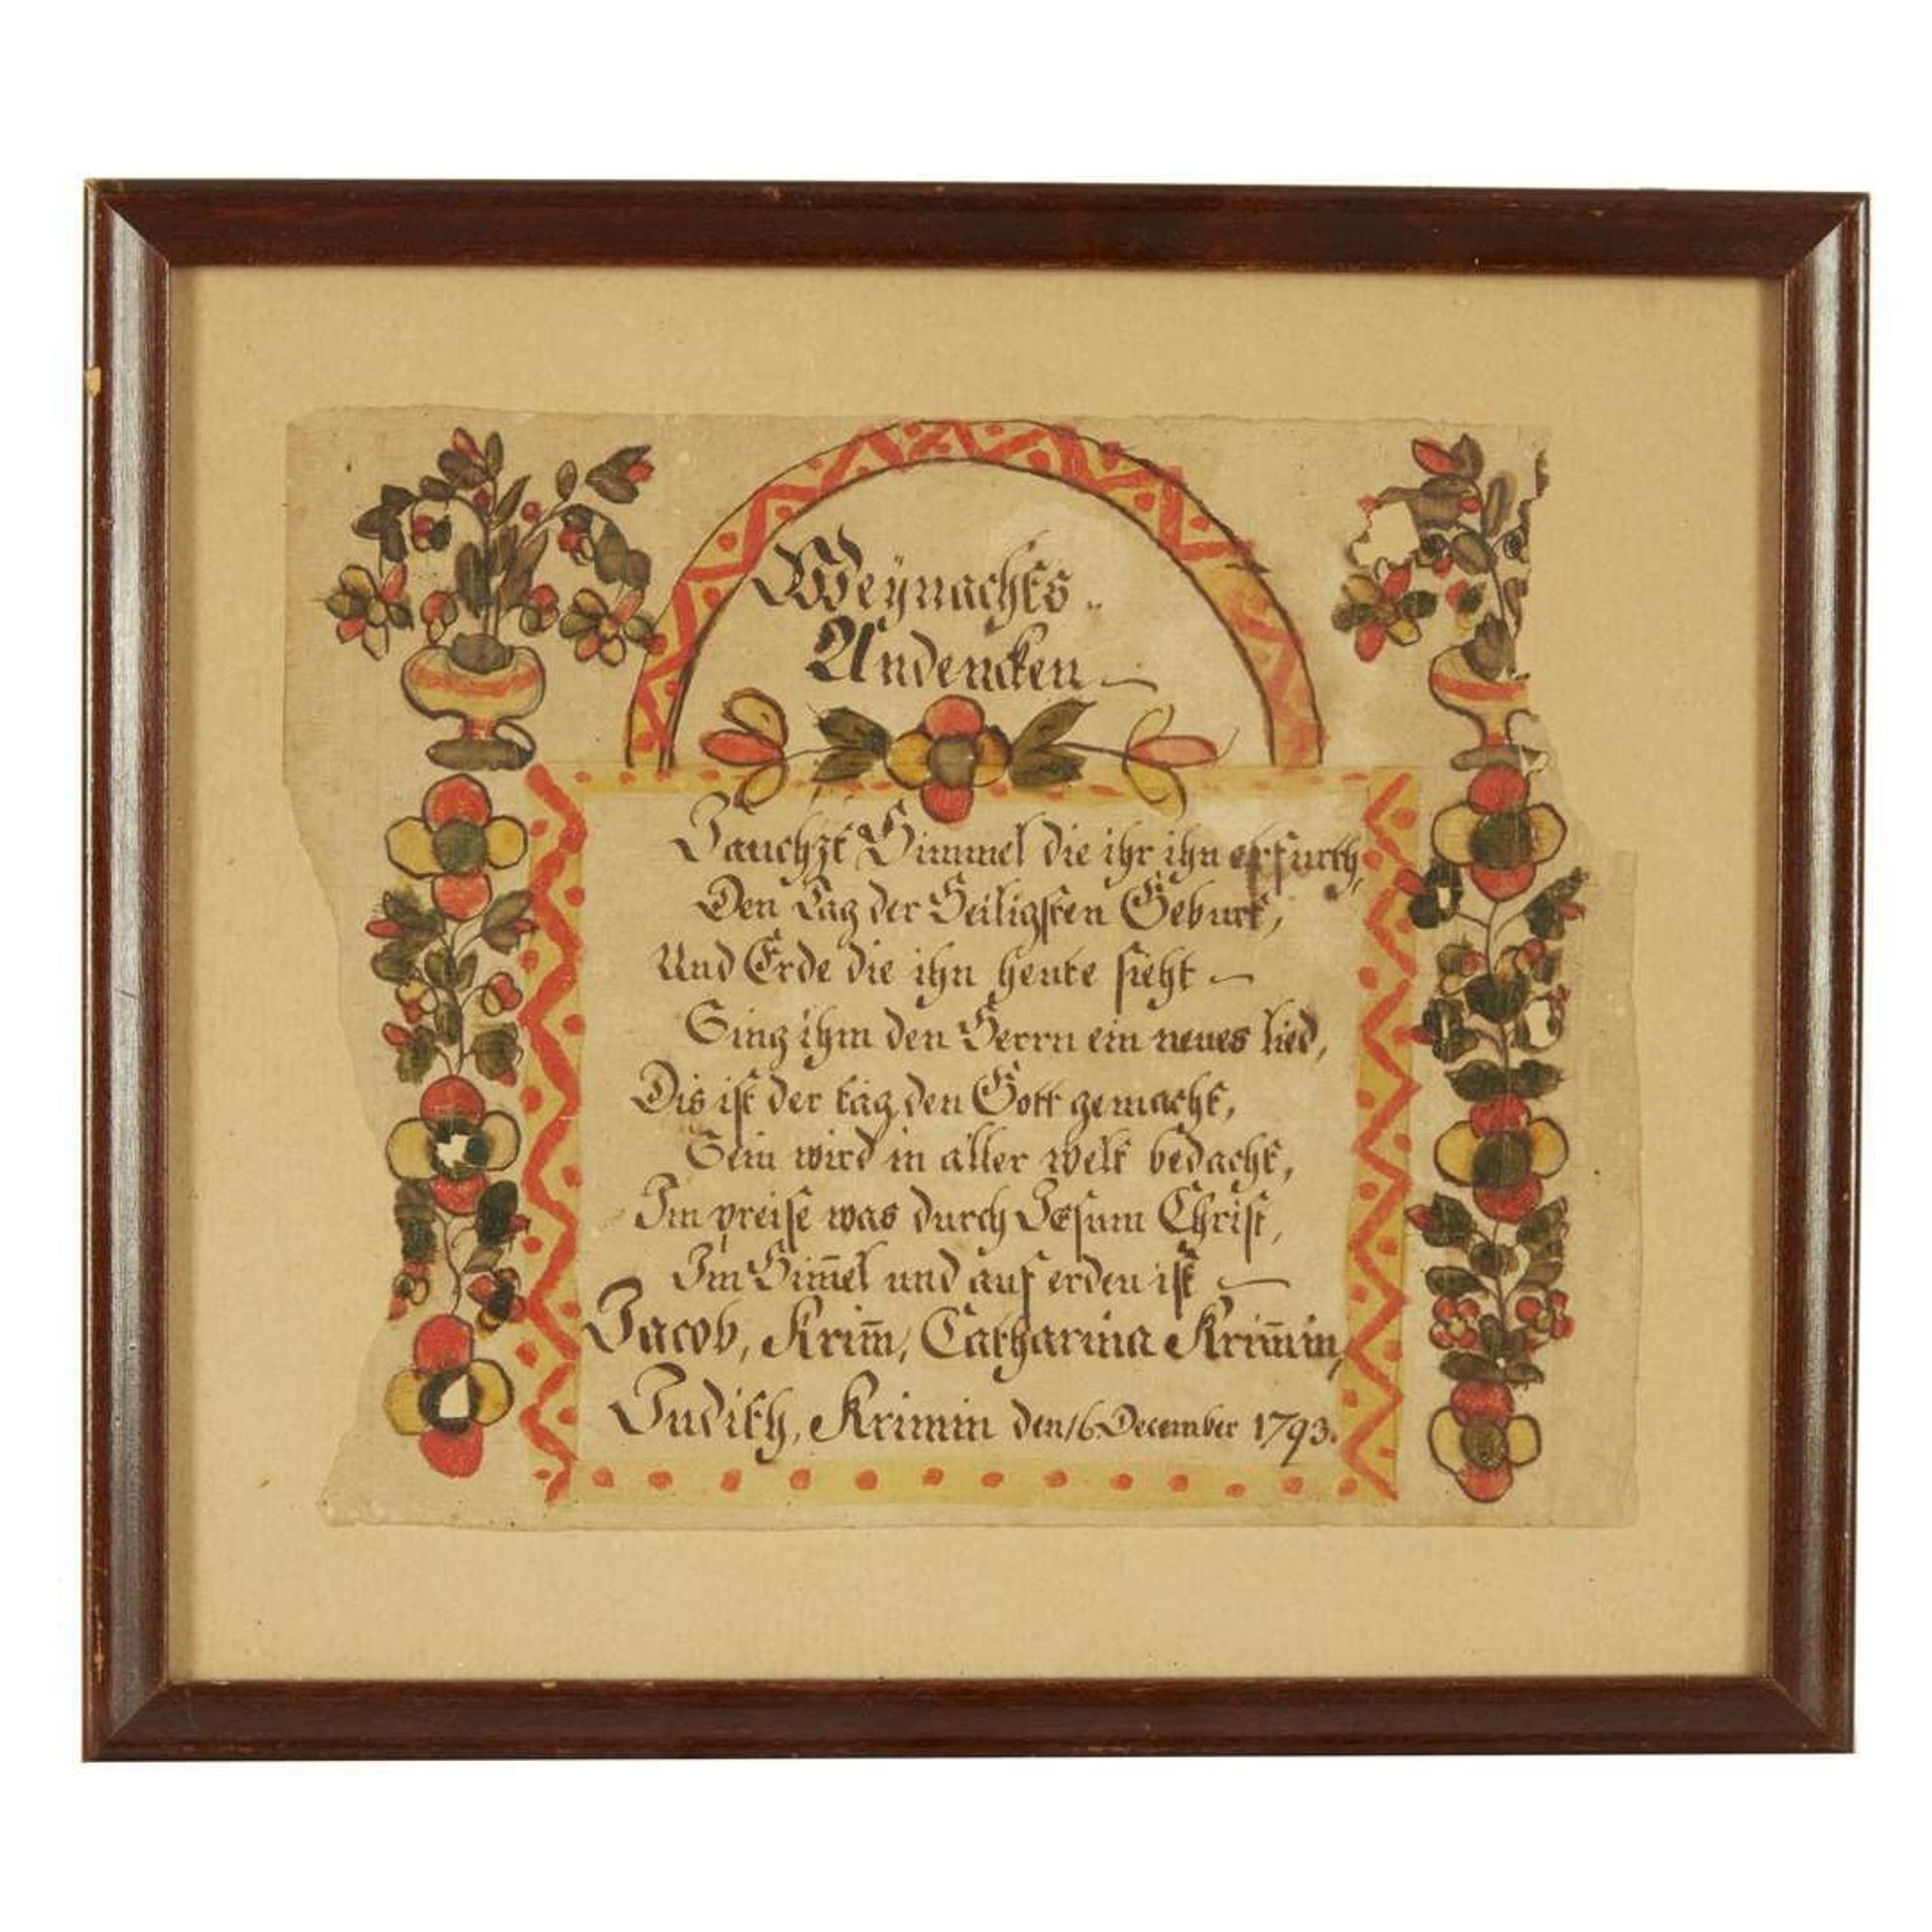 Weÿnachts
Andencken
Jauchzt Himmel die ihr ihn erfurth,
Den Tag der Heiligsten Geburt,
Und Erde die ihn heute sieht
Sing ihm den Herrn ein neues lied,
Dis ist der tag den Gott gemacht,
Sein wird in aller welt bedacht,
Im preise was durch Jesum Christ,
Im Him̄el und auf erden ist
Jacob, Krim̄, Catharina Krim̄in,
Judith, Krimin den 16 December 1793.